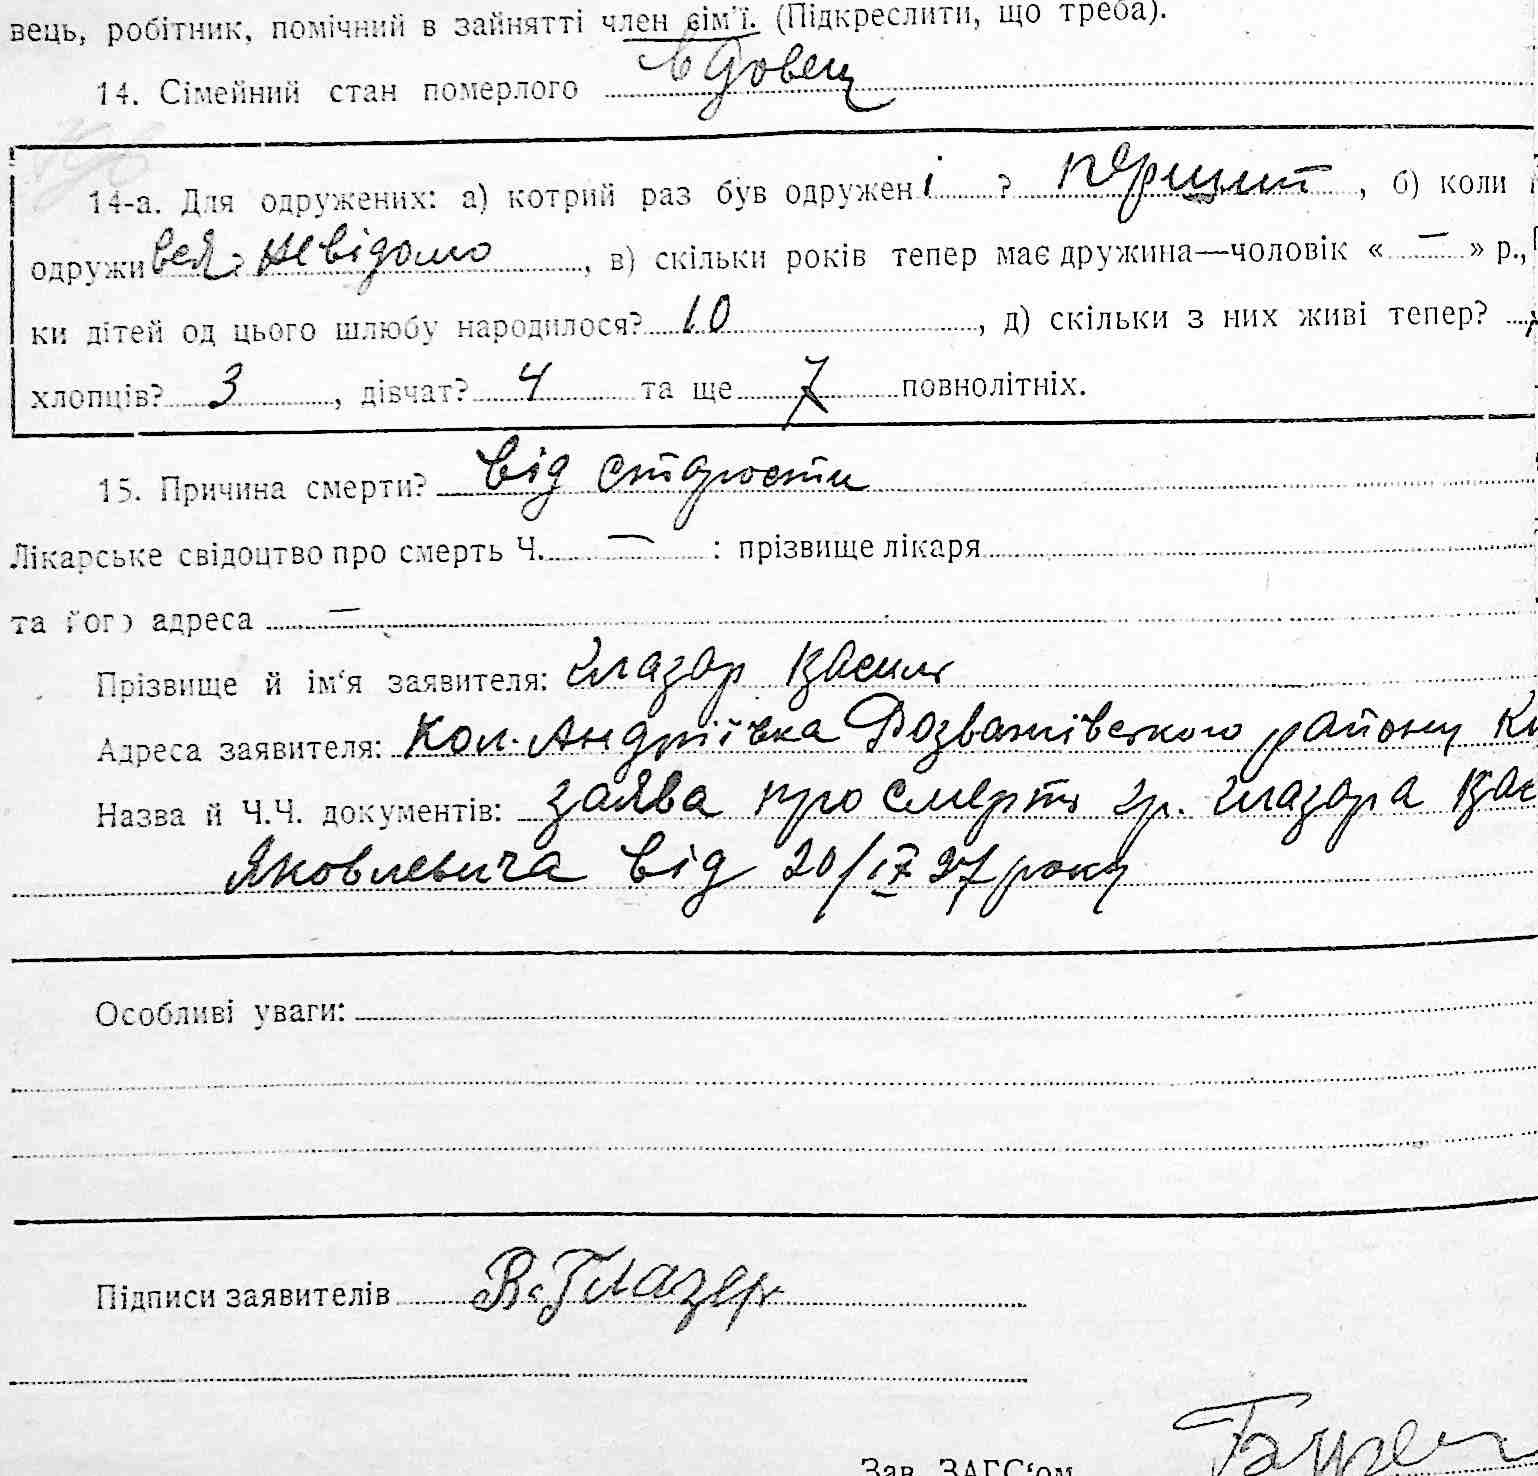 вець, робітник, помічний в зайнятті член сім'ї. (Підкреслити, що треба).
14. Сімейний стан померлого вдовец
14-а. Для одружених: а) котрий раз був одружені ? перший, б) коли
одруживея? невідомо, в) скільки років тепер має дружина—чоловік «—» р.,
ки дітей од цього шлюбу народилося? 10, д) скільки з них живі тепер?
хлопців? 3, дівчат? 4 та ще 7 повнолітніх.
15. Причина смерти? від старости
Лікарське свідоцтво про смерть Ч. — : прізвище лікаря
та його адреса —
Прізвище й ім'я заявителя: Глазар Василь
Адреса заявителя: Кол. Андріївка Розважівського району
Назва й Ч.Ч. документів: заява про смерть гр. Глазара Вас
Яковлевича від 20/IX 37 року
Особливі уваги:
Підписи заявителів В. Глазер
Зав. ЗАГС'ом